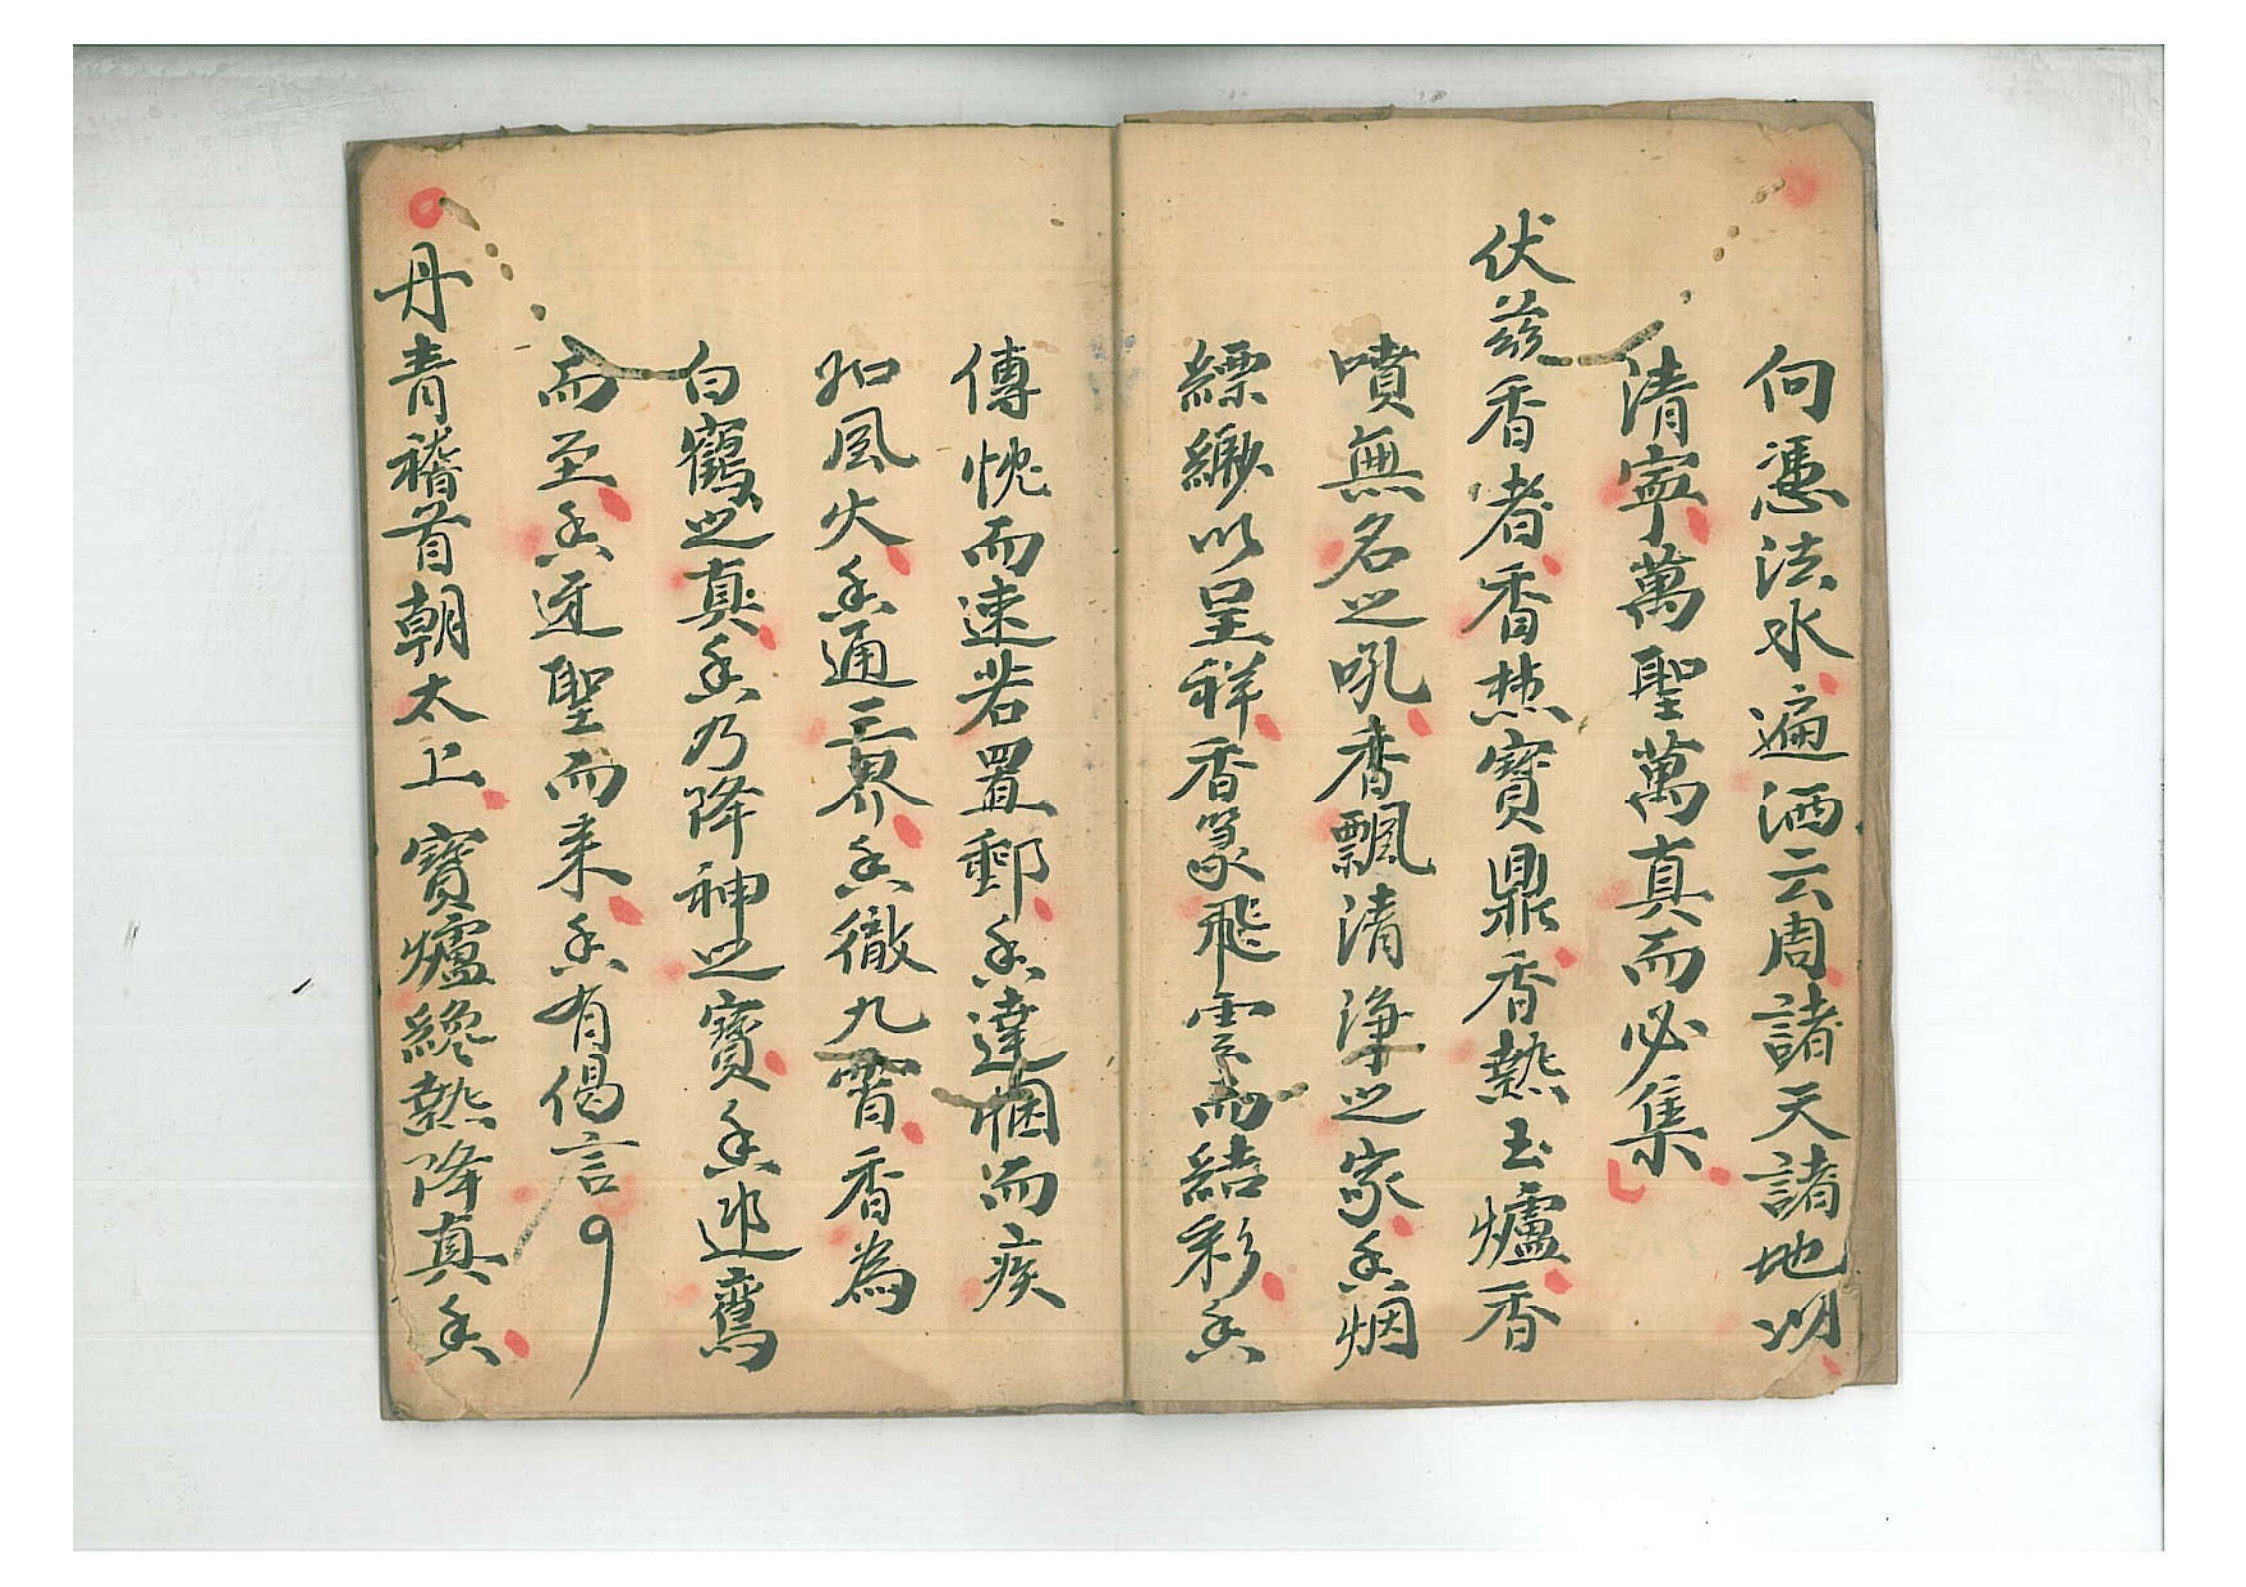 向憑法水遍洒云周諸天諸地以
清寧萬聖萬真而必集
伏兹香者香焚寶鼎香热玉爐香
噴無名之吼香飄清浄之家香烟
縹緲以呈祥香篆飛雲而結彩香
傳忱而速若置郵香達悃而疾
如風火香通三界香徹九霄香為
白鶴之真香乃降神之寶香迎鸞
而至香迓聖而来香有偈言
丹青稽首朝太上寶爐纔热降真香